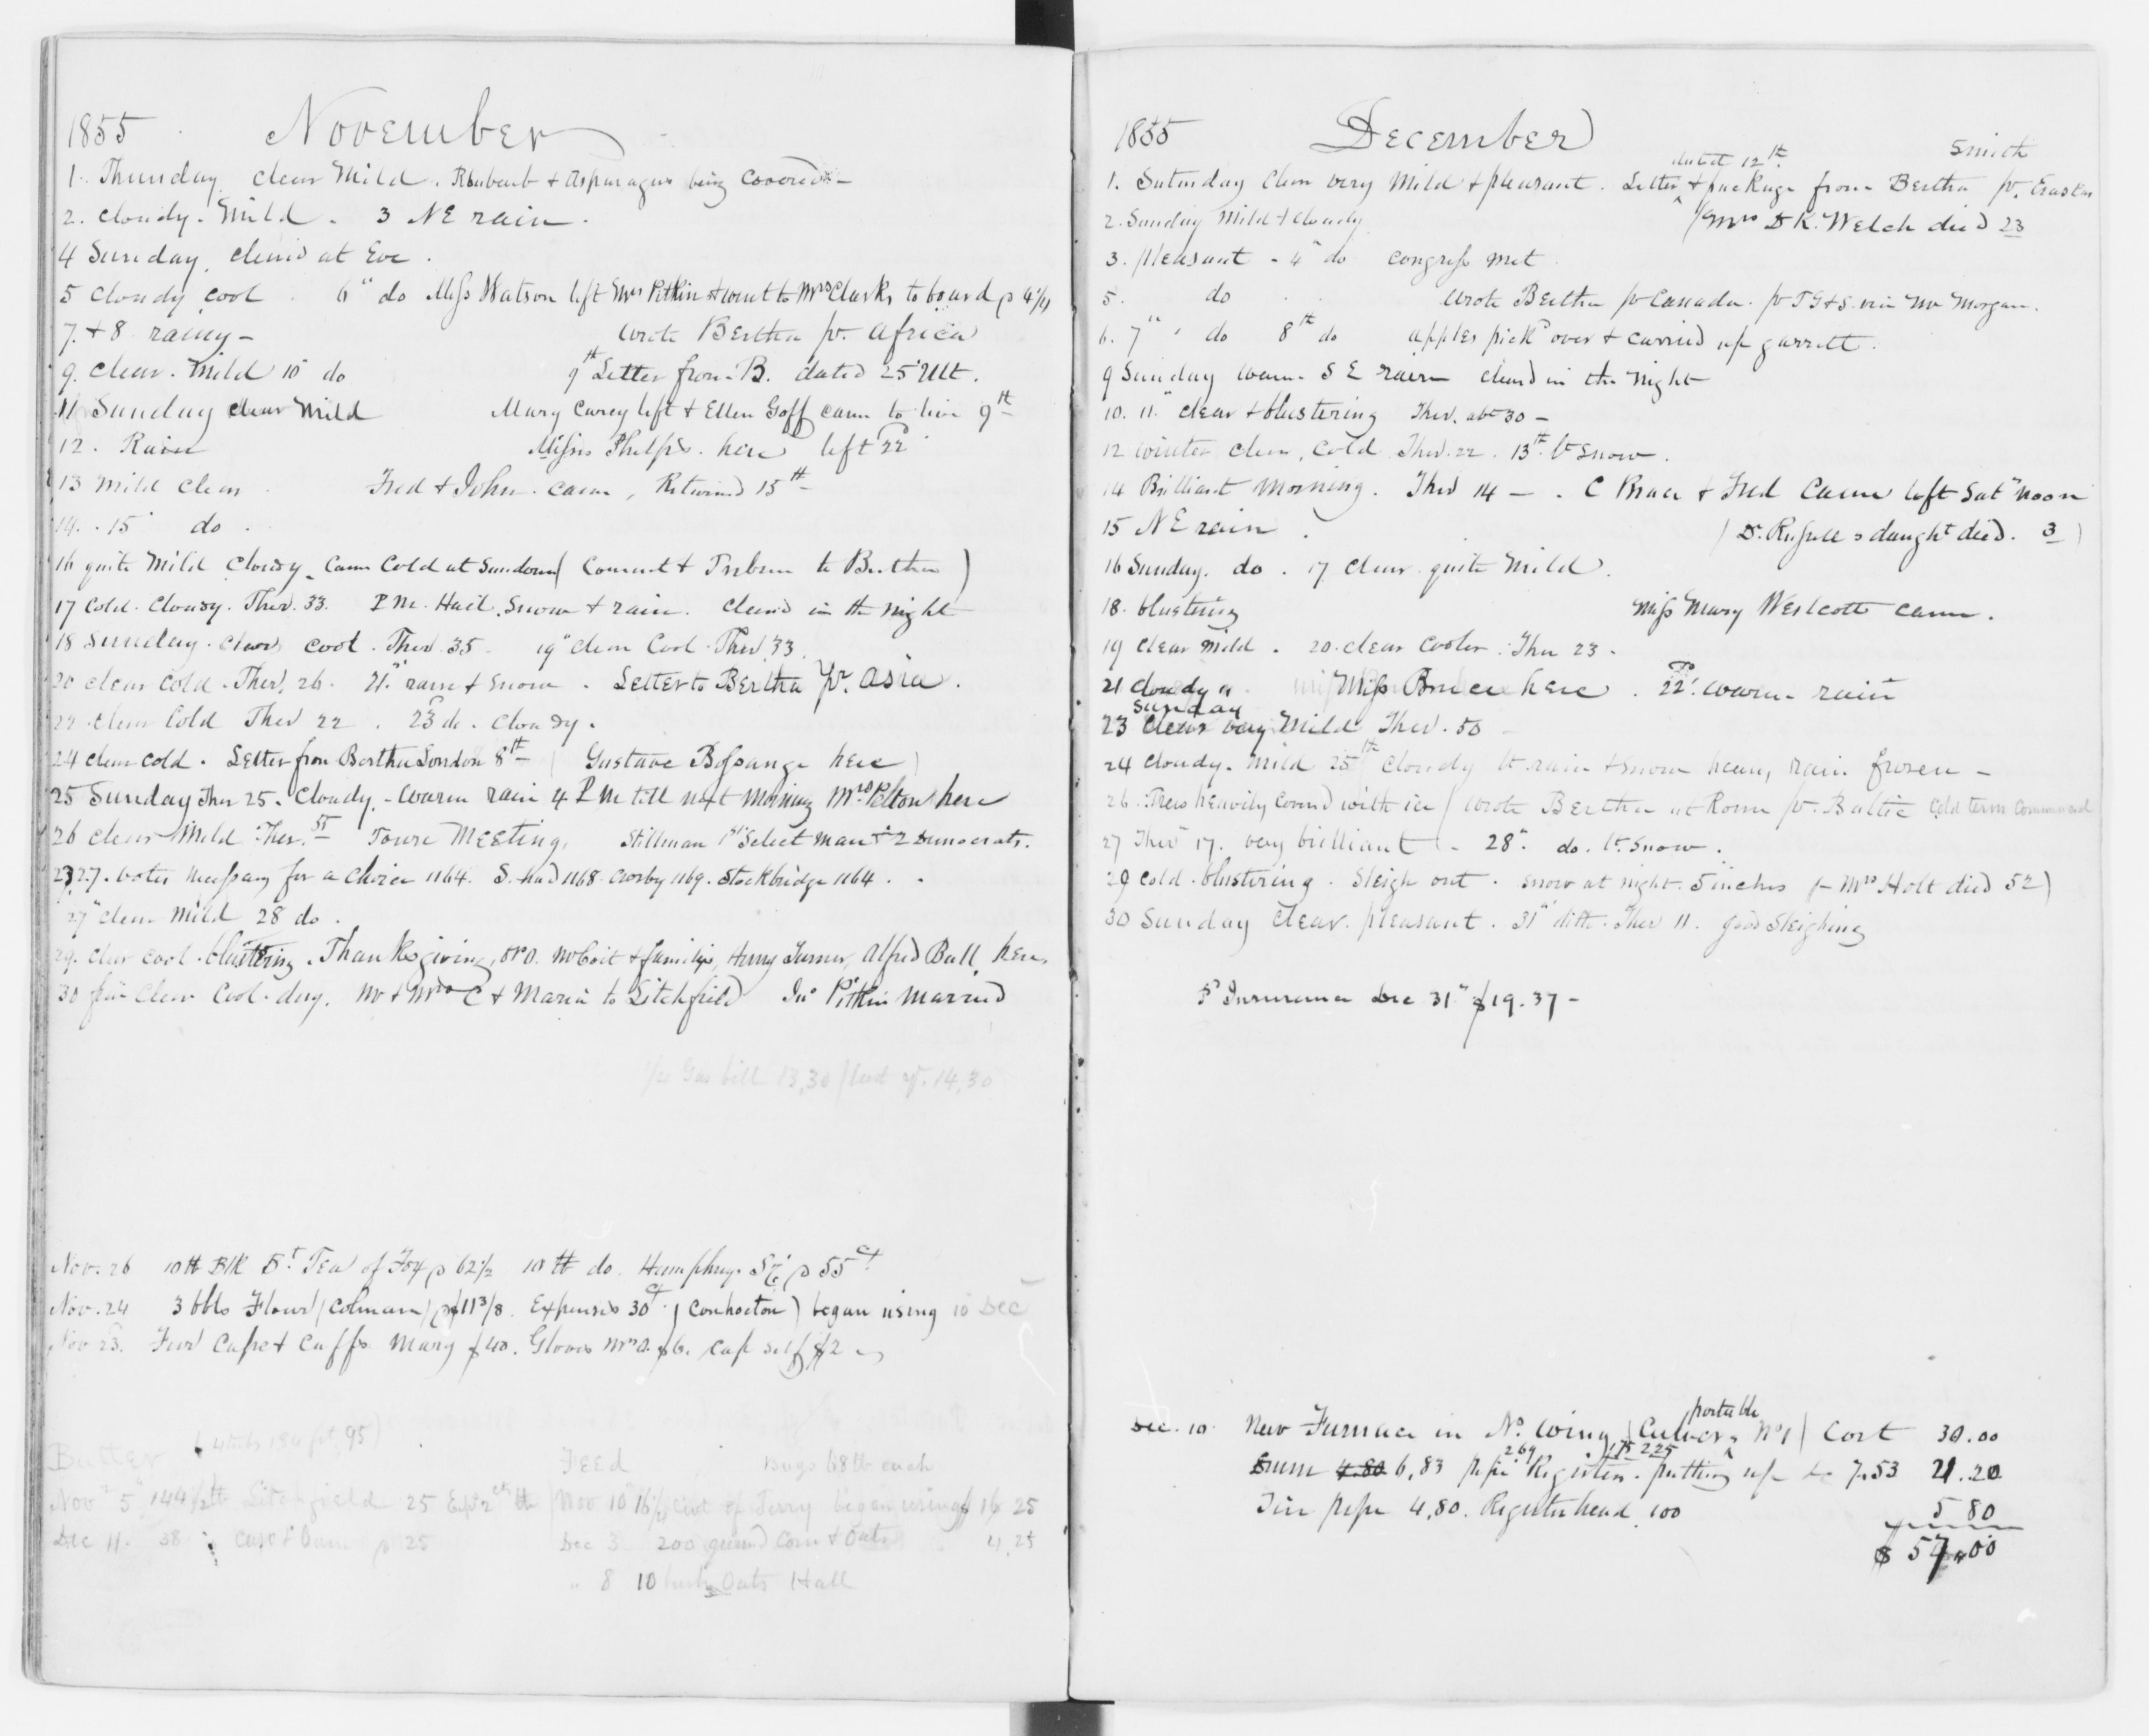 1855 November
1. Thursday, clear Mild. Rhubarb & Asparagus being covered –
2. cloudy. Mild. 3 NE rain.
4 Sunday, clear'd at Eve.
5 Cloudy cool. 6" do Miss Watson left Mrs Pitkin & went to Mrs Clarks to board
7. & 8 rainy – Wrote Bertha pr. Africa
9. Clear. Mild 10 do 9th Letter from B. dated 25 Ult.
11 Sunday clear Mild Mary Carey left & Ellen Goff came to live 9th
12. Rain Misses Phelps. here left 22
13 Mild Clear Fred & John came, Returned 15th
14. 15 do.
16 quite Mild Cloudy. Came Cold at Sundown (Courant & Tribune to Bertha)
17 Cold. Cloudy. Ther. 33. P.M. Hail, Snow & rain. clear'd in the night
18 Sunday. Clear cool. Ther 35. 19" clear Cool. Ther 33.
20 clear Cold. Ther. 26. 21." rain & Snow. Letter to Bertha pr. Asia.
22 clear Cold Ther 22. 23 do. Cloudy.
24 clear cold. Letter from Bertha London 8th (Gustave Bossange here)
25 Sunday Ther 25. Cloudy. Warm rain 4 P M till next Morning Mrs Pelton here
26 clear Mild Ther. 55 Town Meeting, Stillman 1st Select man & 2 Democrats.
2327. votes necessary for a choice 1164. S. had 1168 Crosby 1169. Stockbridge 1164.
27" clear Mild 28 do.
29. Clear cool. blustering. Thanksgiving, Mr Coit & family, Henry Turner, Alfred Ball, here,
30 fine Clear Cool day. Mr & Mrs C & Maria to Litchfield Jno Pitkin Married
Gas bill 13,30 14,30
Nov. 26 10 lb Blk Tea of Foy p 62½ 10 lb do. Humphrey p 55 ct
Nov. 24 3 bbls Flour (Colman) p $11 3/8. Expenses 30 ct (Conhocton) began using 10 Dec
Nov 23. Fur Cape & Cuffs Mary $40. Gloves $6. Cap self $2
Butter
Nov 5" 144½ lb Litchfield 25
Dec 11. 38 p 25
Feed bags 68 lb each
Nov 10 16½ cwt of Terry began using 16 25
Dec 3 200 ground Corn & Oats 4.25
" 8 10 bush Oats Hall
1855 December
1. Saturday clear very Mild & pleasant. Letter dated 12th & package from Bertha pr. Erastus Smith
2. Sunday Mild & Cloudy (Mrs D K. Welch died 23
3. pleasant. 4" do Congress met
5. do Wrote Bertha pr Canada.
6. 7" do 8th do apples pick'd over & carried up garrett.
9 Sunday warm S E rain clear'd in the Night
10. 11." clear & blustering Ther. abt 30 –
12 Winter clear, Cold Ther. 22. 13th lt snow.
14 Brilliant Morning. Ther 14 –. C Brace & Fred Came left Sat" Noon
15 N E rain. (Dr. Russell's daught died. 3)
16 Sunday. do. 17 clear quite Mild.
18. blustering Miss Mary Westcott came.
19 clear mild. 20. clear Cooler. Ther 23.
21 cloudy Miss Brace here. 22 warm rain
23 Sunday Clear very Mild Ther. 50
24 Cloudy. Mild 25th Cloudy lt rain & snow heavy rain frozen –
26. Trees heavily cover'd with ice (Wrote Bertha at Rome pr. Baltic Cold term Commenced
27 Ther 17. very brilliant. 28" do. lt. Snow.
29 Cold. blustering. Sleigh out. Snow at night. 5 inches (Mrs Holt died 52)
30 Sunday Clear. pleasant. 31" ditto Ther 11. good Sleighing
Pd Insurance Dec 31" $19.37 –
Dec. 10. New Furnace in No. Wing (Culvers portable No 1) Cost 30.00
6,83 pipe 269 Register putting up &c 7.53 21.20
Tin pipe 4,80. Register head 100 5 80
$57.00